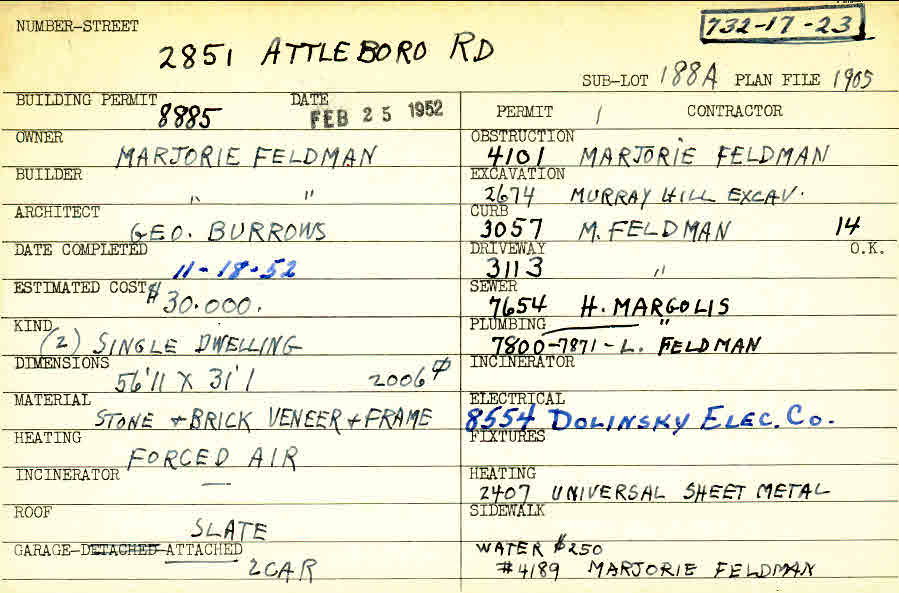 732-17-23
NUMBER-STREET
2851 ATTLEBORO RD
SUB-LOT 188A PLAN FILE 1905
BUILDING PERMIT DATE
8885 FEB 25 1952
OWNER
MARJORIE FELDMAN
BUILDER
" "
ARCHITECT
GEO. BURROWS
DATE COMPLETED
11-18-52
ESTIMATED COST $
30.000.
KIND
(2) SINGLE DWELLING
DIMENSIONS
56'11 X 31'1 2006
MATERIAL
STONE + BRICK VENEER + FRAME
HEATING
FORCED AIR
INCINERATOR —
ROOF
SLATE
GARAGE-DETACHED-ATTACHED
2 CAR
PERMIT / CONTRACTOR
OBSTRUCTION
4101 MARJORIE FELDMAN
EXCAVATION
2674 MURRAY HILL EXCAV.
CURB
3057 M. FELDMAN 14
DRIVEWAY O.K.
3113 "
SEWER
7654 H. MARGOLIS
PLUMBING "
7800-7871-L. FELDMAN
INCINERATOR
ELECTRICAL
8554 DOLINSKY ELEC. CO.
FIXTURES
HEATING
2407 UNIVERSAL SHEET METAL
SIDEWALK
WATER $250
#4189 MARJORIE FELDMAN